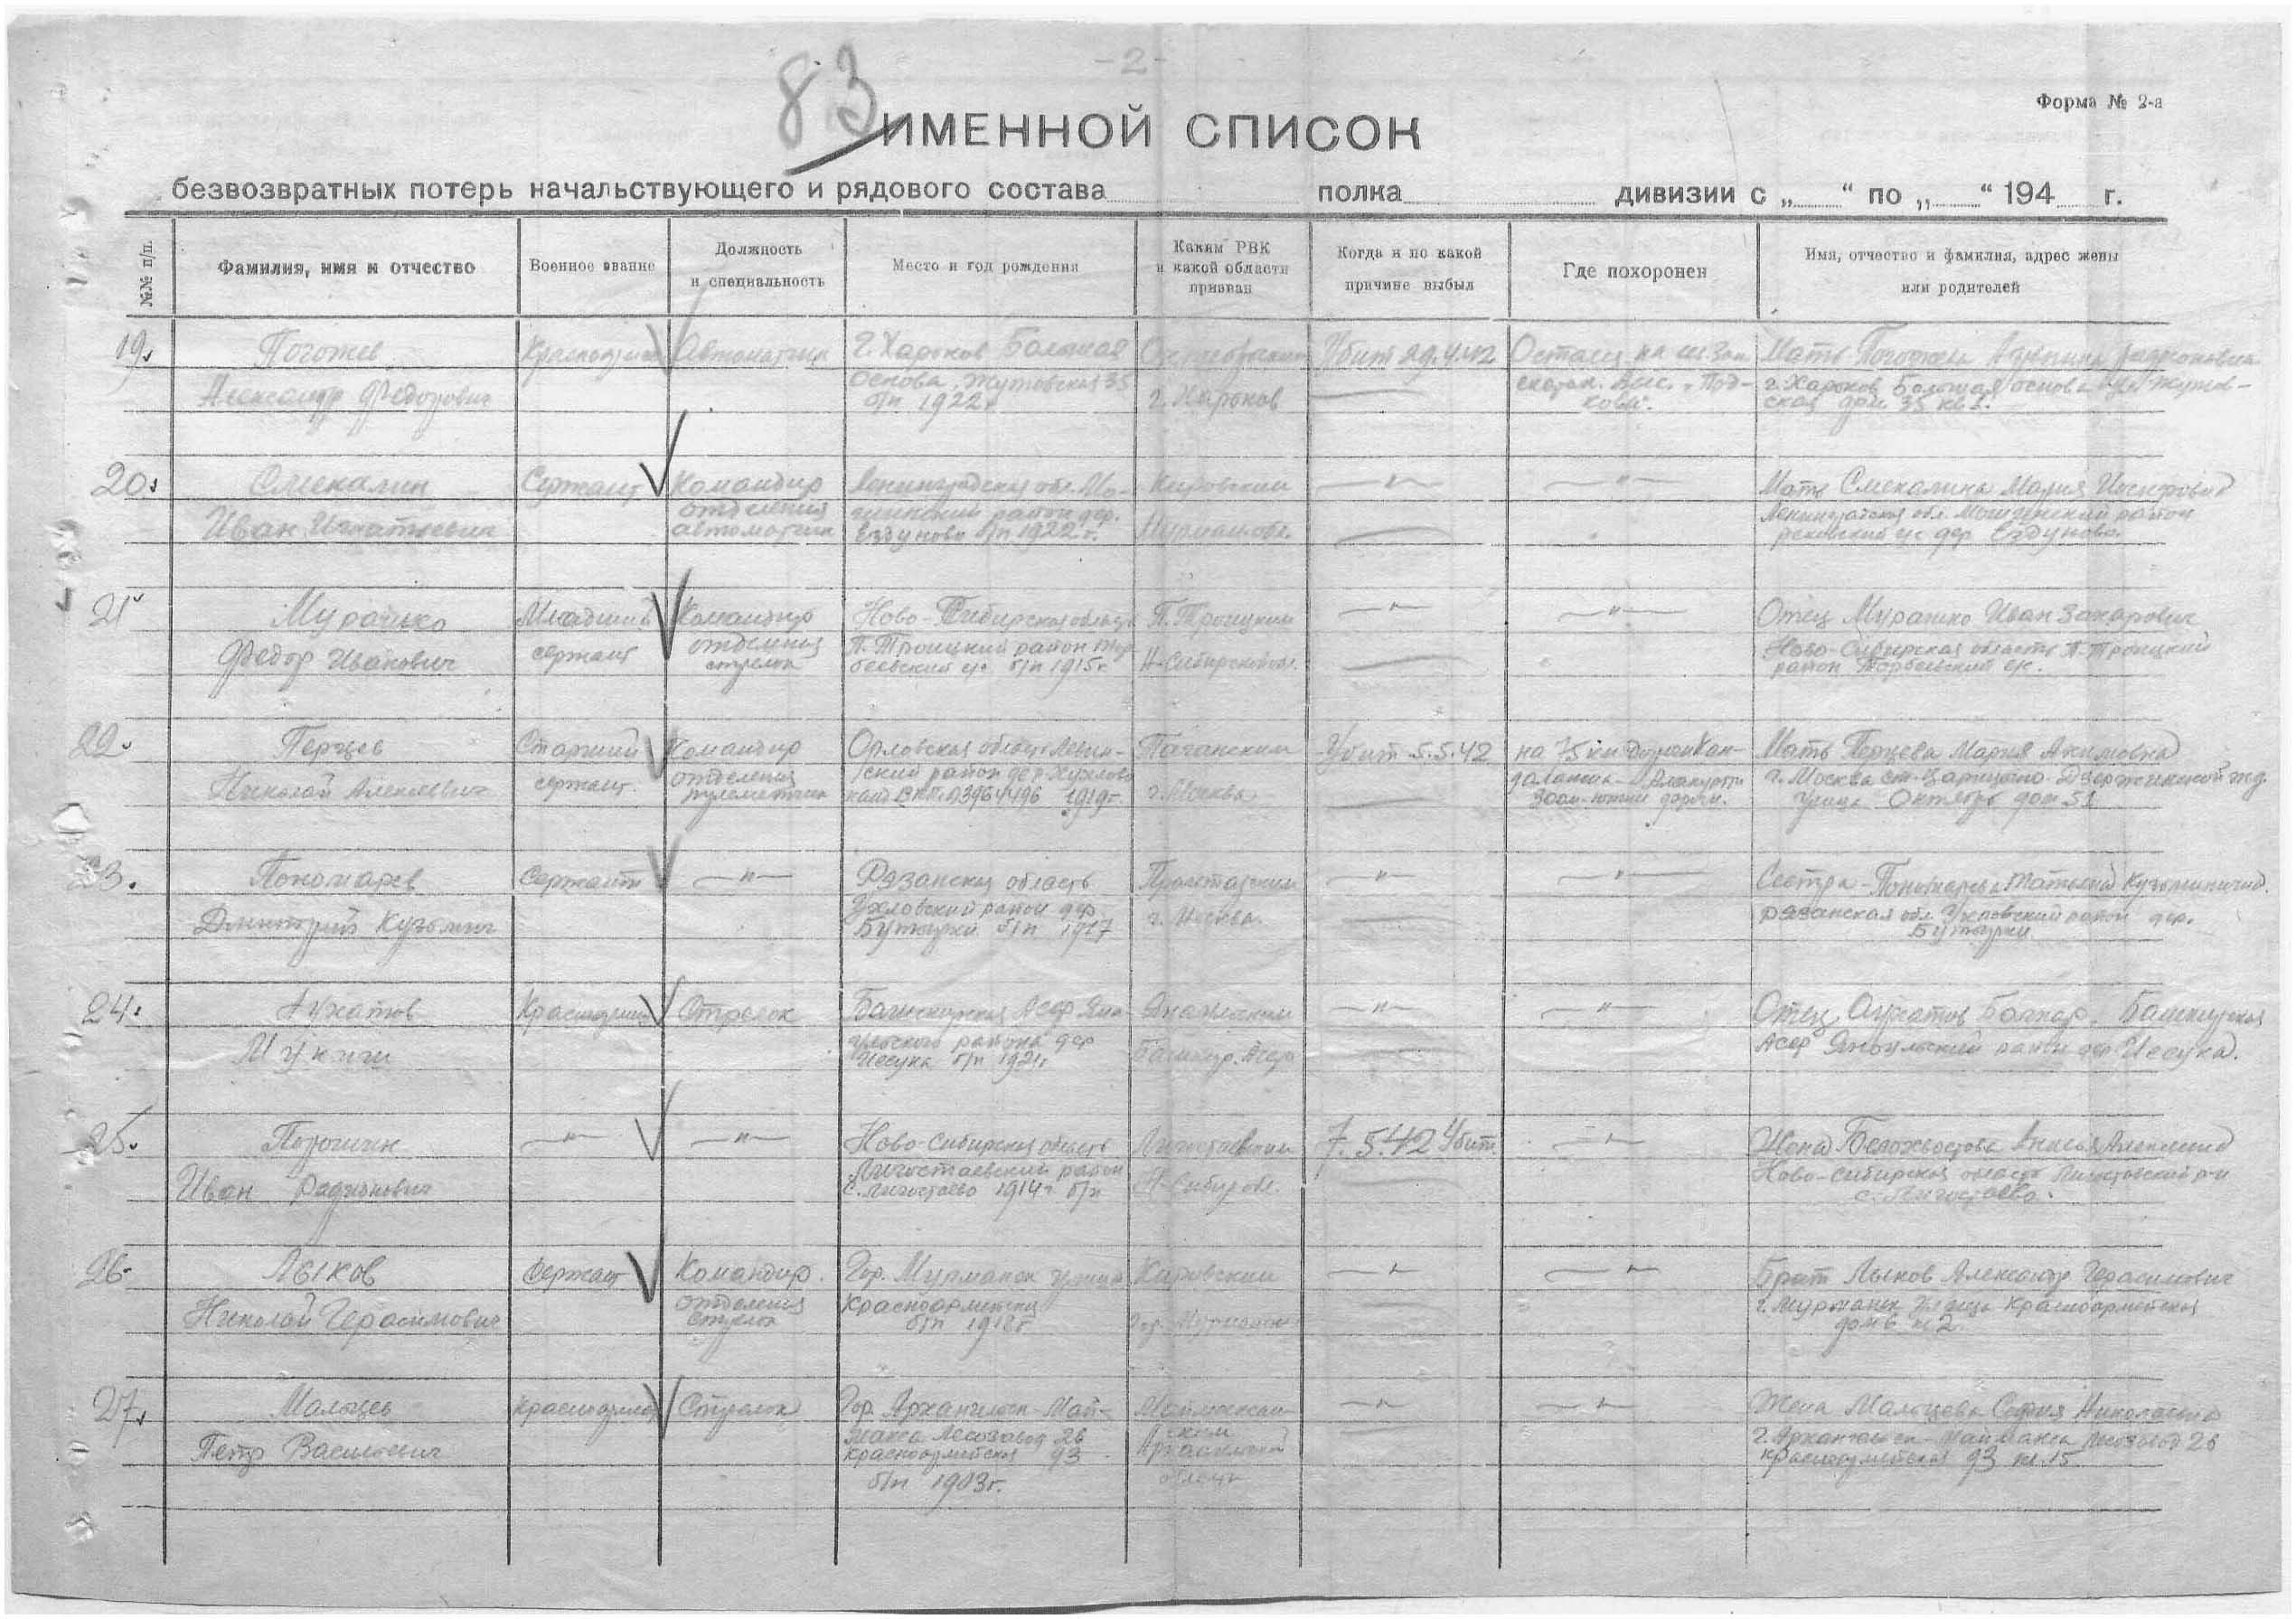 - 2 -
83
Форма № 2-а
ИМЕННОЙ СПИСОК
безвозвратных потерь начальствующего и рядового состава полка дивизии с „ “ по „ “ 194 г.
№№ п/п.
Фамилия, имя и отчество
Военное звание
Должность
и специальность
Место и год рождения
Каким РВК
и какой области
призван
Когда и по какой
причине выбыл
Где похоронен
Имя, отчество и фамилия, адрес жены
или родителей
19.
Погожев
Александр Федорович
Автоматчик
г. Харьков Большая
Основа, Жутовская 35
б/п 1922 г
г. Харьков
Убит 29.4.42
Остался на
Мать Погожева
г. Харьков Большая основа ул Жутов-
ская дом 35 кв 1.
20.
Смекалин
Иван Игнатьевич
Сержант
Командир
отделения
автоматчик
Ленинградская обл. Мо-
район дер.
Ездуново б/п 1922 г.
Кировским
Мурман. обл.
— " —
— " —
Мать Смекалина Мария
Ленинградская обл. район
дер Ездуново
21
Мурашко
Федор Иванович
Младший
сержант
Командир
отделения
стрелок
Ново-Сибирская область
П. Троицкий район Тор-
беевский с/с б/п 1915 г
П. Троицким
Н-Сибирской обл.
— " —
— " —
Отец Мурашко Иван Захарович
Ново-Сибирская область П-Троицкий
район Торбеевский с/с.
22.
Перцев
Николай Алексеевич
Старший
сержант.
Командир
отделения
пулеметчик
Орловская область Ленин-
ский район дер
1919 г.
г. Москва
Убит 5.5.42
на 75 км дороги Кан-
далакша - Алакуртти
300 м южнее дороги.
Мать Перцева Мария Акимовна
г. Москва ст. Царицыно - Дзержинской жд.
улица Октябрь дом 51
23.
Пономарев
Дмитрий Кузьмич
Сержант
— " —
Рязанская область
Ухоловский район дер
Бутырки б/п 1917
Пролетарским
г. Москва.
— " —
— " —
Сестра - Пономарева
Рязанская обл. Ухоловский район дер.
Бутырки
24.
Ахатов
Стрелок
Башкирская Асср Яна-
ульского района дер
б/п 1921 г
Янаульским
Башкир. Асср
— " —
— " —
Отец Башкирская
Асср Янаульский район дер
25.
Иван Радионович
— " —
— " —
Ново-Сибирская область
Легостаевский район
с. Легостаево 1914 г б/п
Легостаевским
Н-Сибир обл.
7.5.42 Убит
— " —
Жена Белохвостова
Ново-Сибирская область р-н
с. Легостаево.
26.
Лыков
Николай Герасимович
Сержант
Командир
отделения
стрелок
Гор. Мурманск улица
Красноармейская
б/п 1918 г
Кировским
гор. Мурманск
— " —
— " —
Брат Лыков Александр Герасимович
г. Мурманск улица Красноармейская
дом 6 к 2.
27.
Мальцев
Петр Васильевич
Красноармеец
Стрелок
Гор. Архангельск Май-
макса Лесозавод 26
Красноармейская 93
б/п 1903 г.
Маймаксан-
ским
Архангельской
области
— " —
— " —
Жена Мальцева София Николаевна
г. Архангельск Маймакса Лесозавод 26
Красноармейская 93 кв. 15